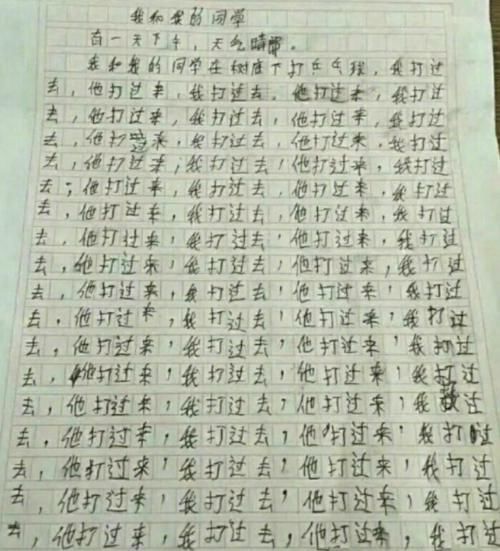 我和我的同学
有一天下午,天气晴。
我和我的同学在树底下打乒乓球,我打过
去,他打过来,我打过去,他打过来,我打过
去,他打过来,我打过去,他打过来,我打过
去,他打过来,我打过去,他打过来,我打过
去,他打过来,我打过去,他打过来,我打过
去,他打过来,我打过去,他打过来,我打过
去,他打过来,我打过去,他打过来,我打过
去,他打过来,我打过去,他打过来,我打过
去,他打过来,我打过去,他打过来,我打过
去,他打过来,我打过去,他打过来,我打过
去,他打过来,我打过去,他打过来,我打过
去,他打过来,我打过去,他打过来,我打过
去,他打过来,我打过去,他打过来,我打过
去,他打过来,我打过去,他打过来,我过
去,他打过来,我打过去,他打过来,我打过
去,他打过来,我打过去,他打过来,我打过
去,他打过来,我打过去,他打过来,我打过
去,他打过来,我打过去,他打过来,我打过